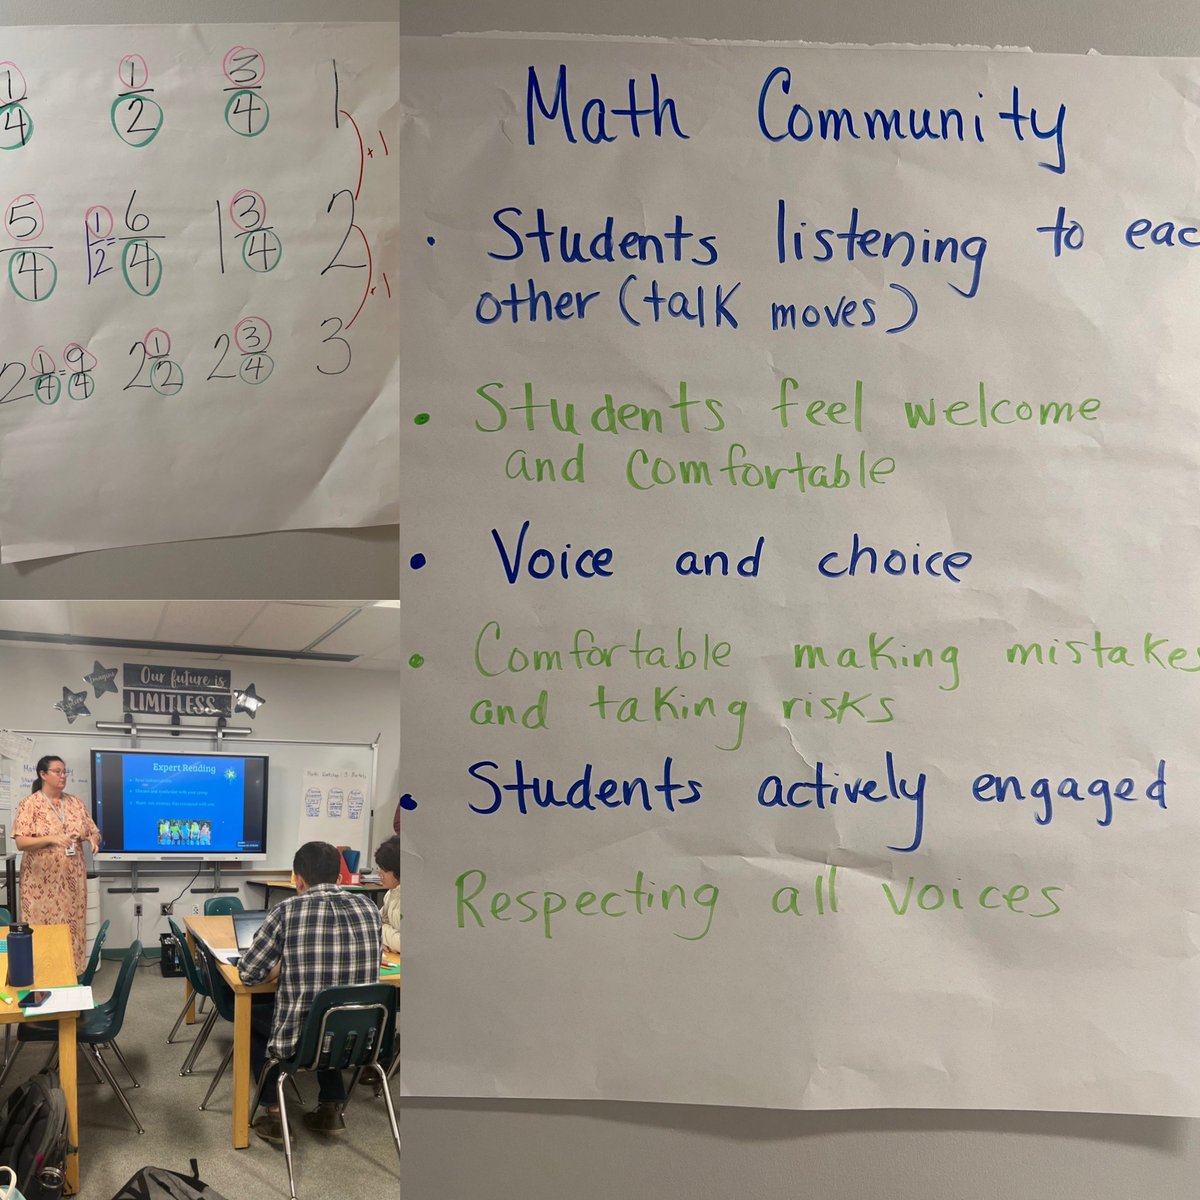 1/4 1/2 3/4 1
+1
5/4 1 1/2 = 6/4 1 3/4 2
+1
2 1/4 = 9/4 2 1/2 2 3/4 3
Math Community
• Students listening to eac
other (talk moves)
• Students feel welcome
and comfortable
• Voice and choice
• Comfortable making mistakes
and taking risks
• Students actively engaged
Respecting all voices
imagine
Our future is
LIMITLESS
Expert Reading